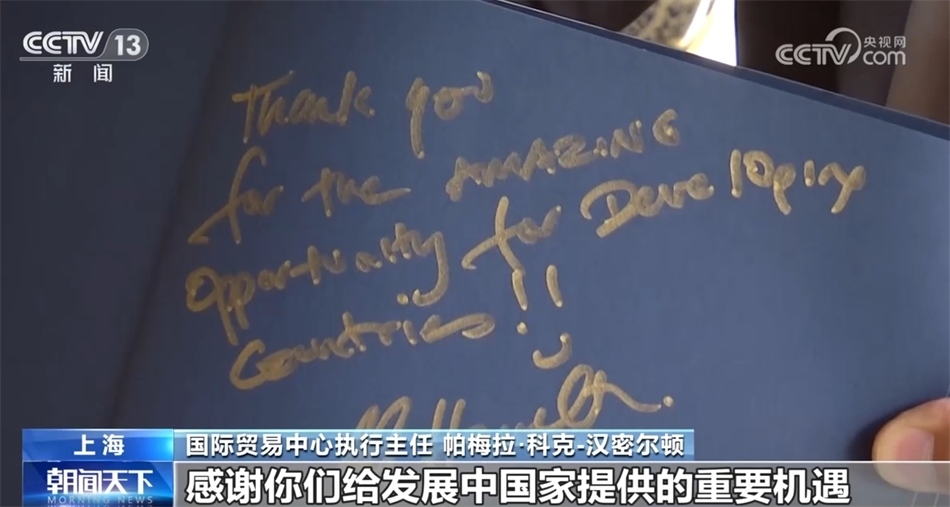 CCTV 13
新闻
CCTV 央视网
com
Thank you
for the AMAZING
Opportunity for Developing
Countries !!
上海
国际贸易中心执行主任 帕梅拉·科克-汉密尔顿
朝闻天下
MORNING NEWS
感谢你们给发展中国家提供的重要机遇